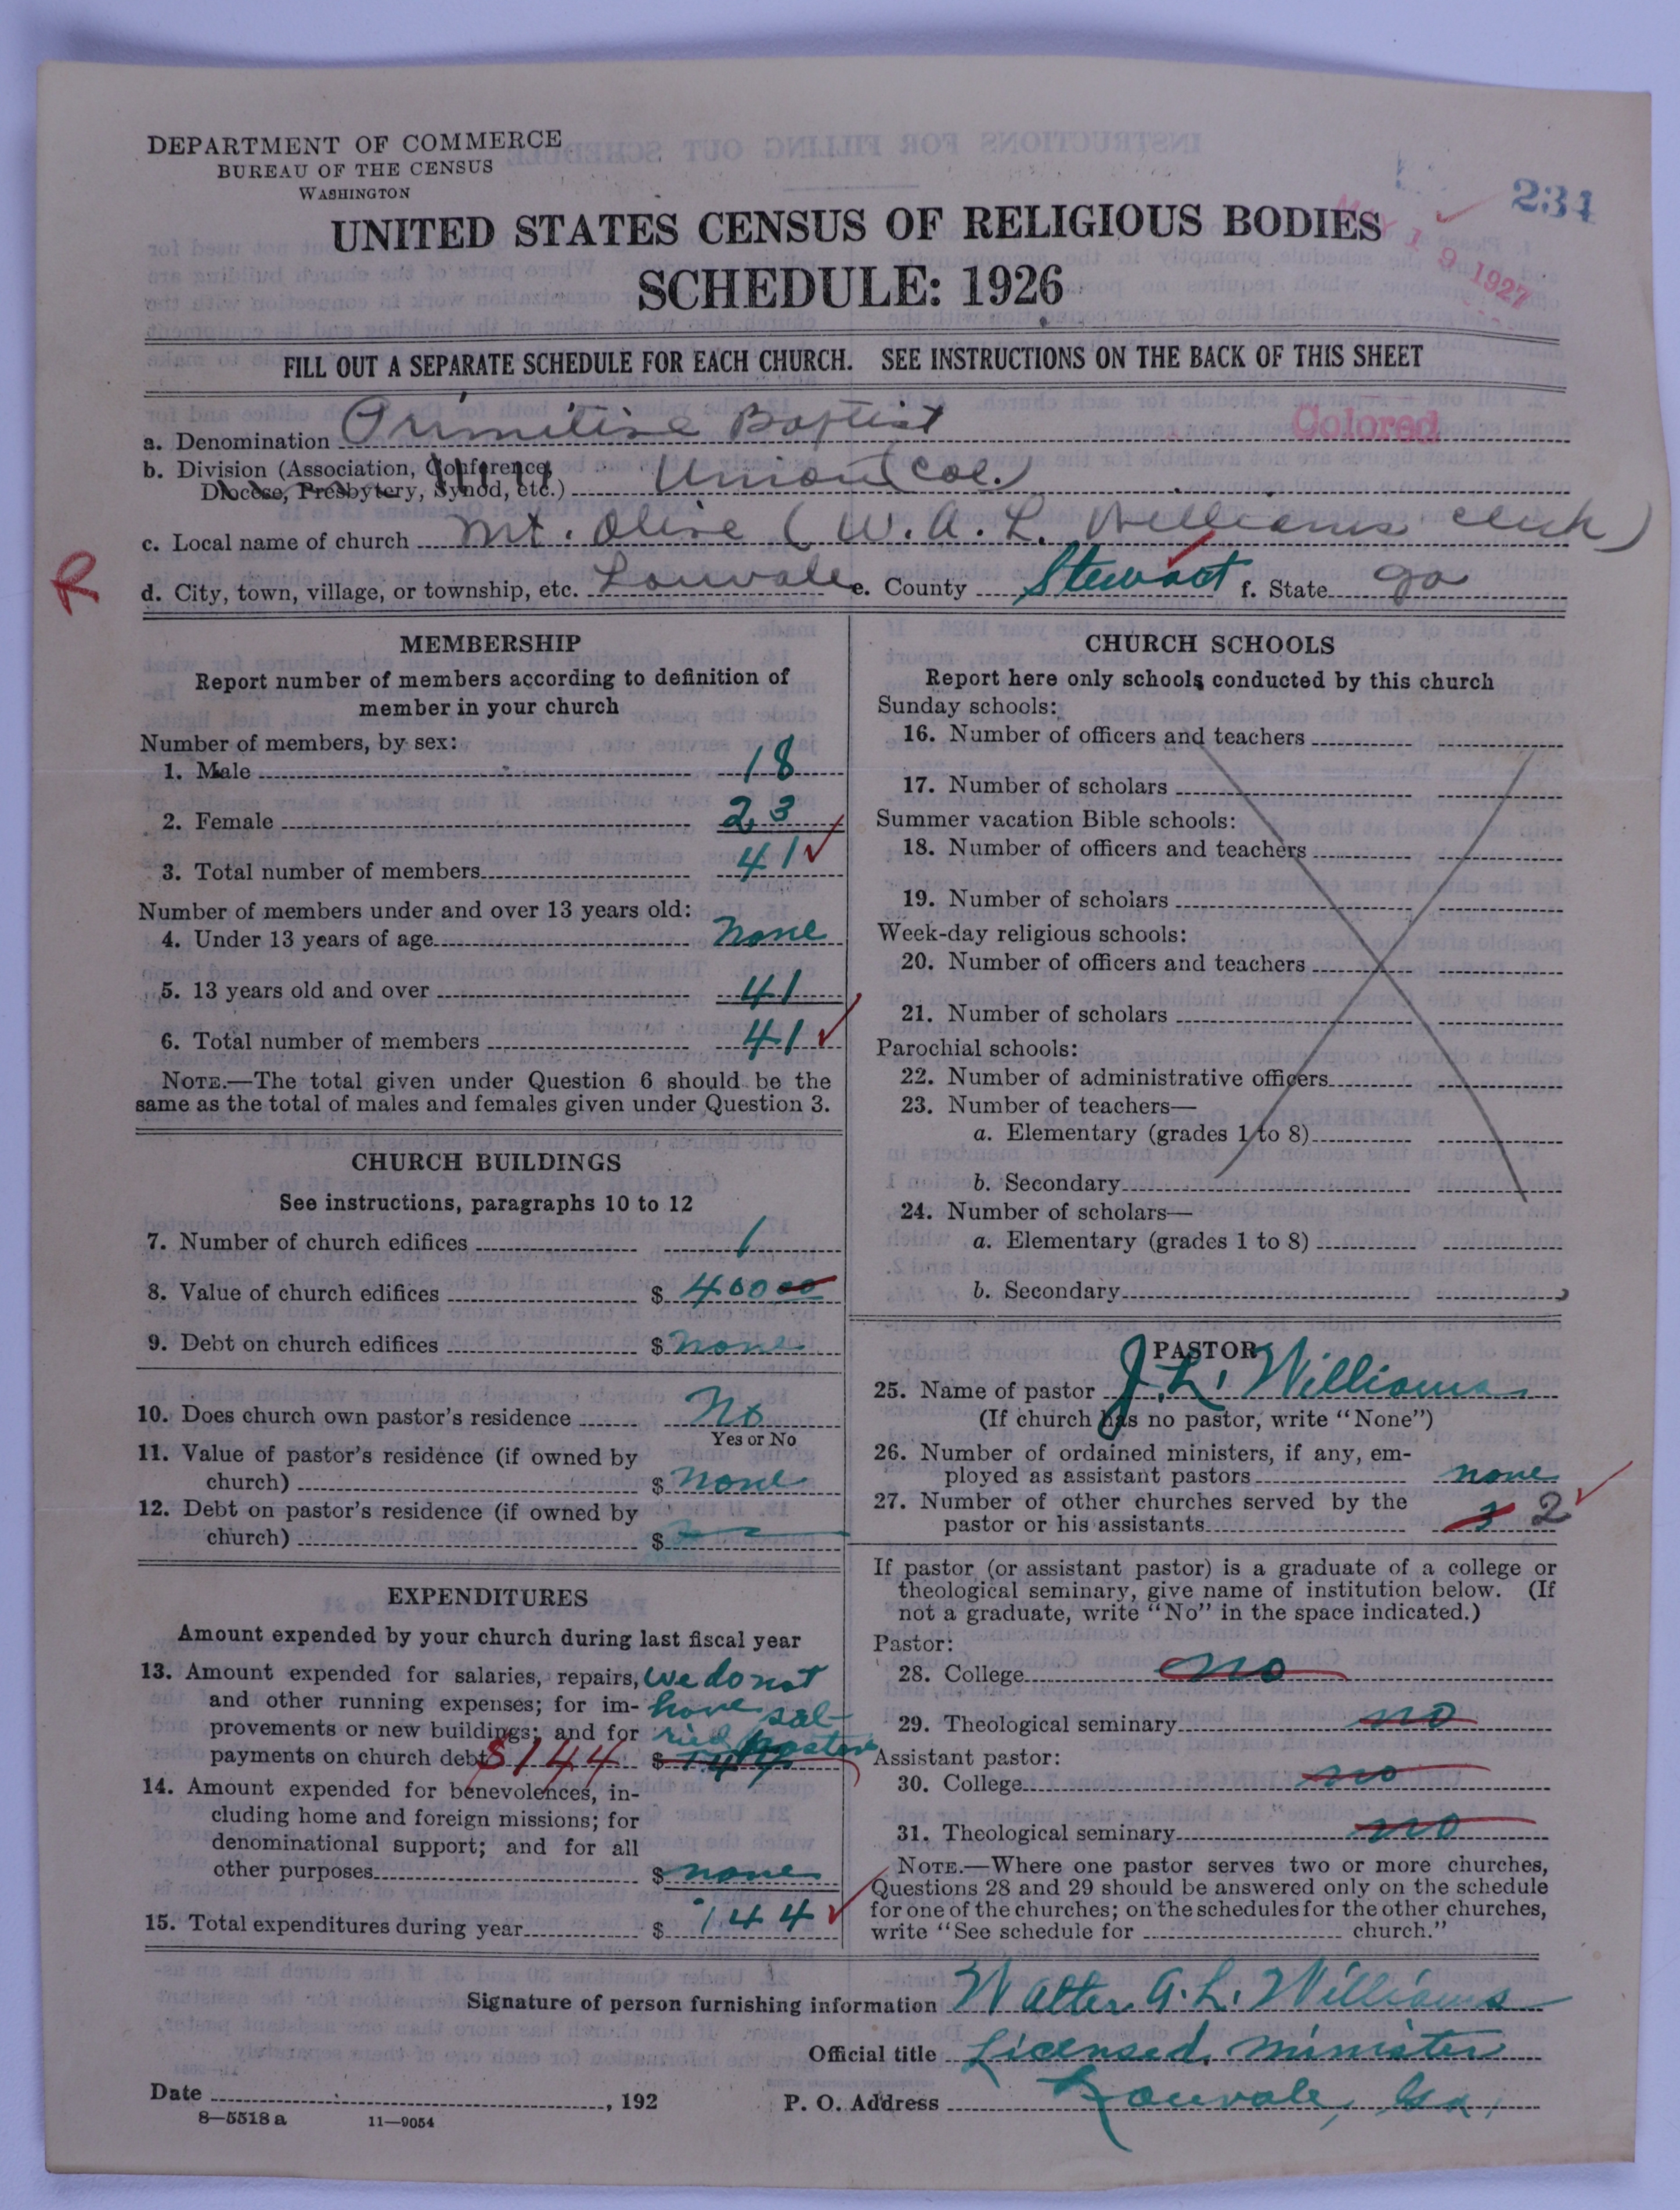 DEPARTMENT OF COMMERCE
BUREAU OF THE CENSUS
WASHINGTON
234
MAY 19 1927
UNITED STATES CENSUS OF RELIGIOUS BODIES
SCHEDULE: 1926
FILL OUT A SEPARATE SCHEDULE FOR EACH CHURCH. SEE INSTRUCTIONS ON THE BACK OF THIS SHEET
a. Denomination Primitive Baptist Colored
b. Division (Association, Conference,
Diocese, Presbytery, Synod, etc.) Union (Col.)
c. Local name of church Mt. Olive (W. A. L. Williams clerk)
R
d. City, town, village, or township, etc. Louvale e. County Stewart f. State Ga
MEMBERSHIP
Report number of members according to definition of
member in your church
Number of members, by sex:
1. Male 18
2. Female 23
3. Total number of members 41
Number of members under and over 13 years old:
4. Under 13 years of age none
5. 13 years old and over 41
6. Total number of members 41
NOTE.—The total given under Question 6 should be the
same as the total of males and females given under Question 3.
CHURCH BUILDINGS
See instructions, paragraphs 10 to 12
7. Number of church edifices 1
8. Value of church edifices $ 400 00
9. Debt on church edifices $ none
10. Does church own pastor's residence No
Yes or No
11. Value of pastor's residence (if owned by
church) $ none
12. Debt on pastor's residence (if owned by
church) $
EXPENDITURES
Amount expended by your church during last fiscal year
13. Amount expended for salaries, repairs, we do not
and other running expenses; for im- have sal-
provements or new buildings; and for ried pastors
payments on church debt $144 $ 144
14. Amount expended for benevolences, in-
cluding home and foreign missions; for
denominational support; and for all
other purposes $ none
15. Total expenditures during year $ 144
CHURCH SCHOOLS
Report here only schools conducted by this church
Sunday schools:
16. Number of officers and teachers
17. Number of scholars
Summer vacation Bible schools:
18. Number of officers and teachers
19. Number of scholars
Week-day religious schools:
20. Number of officers and teachers
21. Number of scholars
Parochial schools:
22. Number of administrative officers
23. Number of teachers—
a. Elementary (grades 1 to 8)
b. Secondary
24. Number of scholars—
a. Elementary (grades 1 to 8)
b. Secondary
PASTOR
25. Name of pastor J. L. Williams
(If church has no pastor, write "None")
26. Number of ordained ministers, if any, em-
ployed as assistant pastors none
27. Number of other churches served by the
pastor or his assistants 3 2
If pastor (or assistant pastor) is a graduate of a college or
theological seminary, give name of institution below. (If
not a graduate, write "No" in the space indicated.)
Pastor:
28. College no
29. Theological seminary no
Assistant pastor:
30. College no
31. Theological seminary no
NOTE.—Where one pastor serves two or more churches,
Questions 28 and 29 should be answered only on the schedule
for one of the churches; on the schedules for the other churches,
write "See schedule for church."
Signature of person furnishing information Walter A. L. Williams
Official title Licensed, minister
Date , 192 P. O. Address Louvale, Ga,
8—5518 a 11—9054